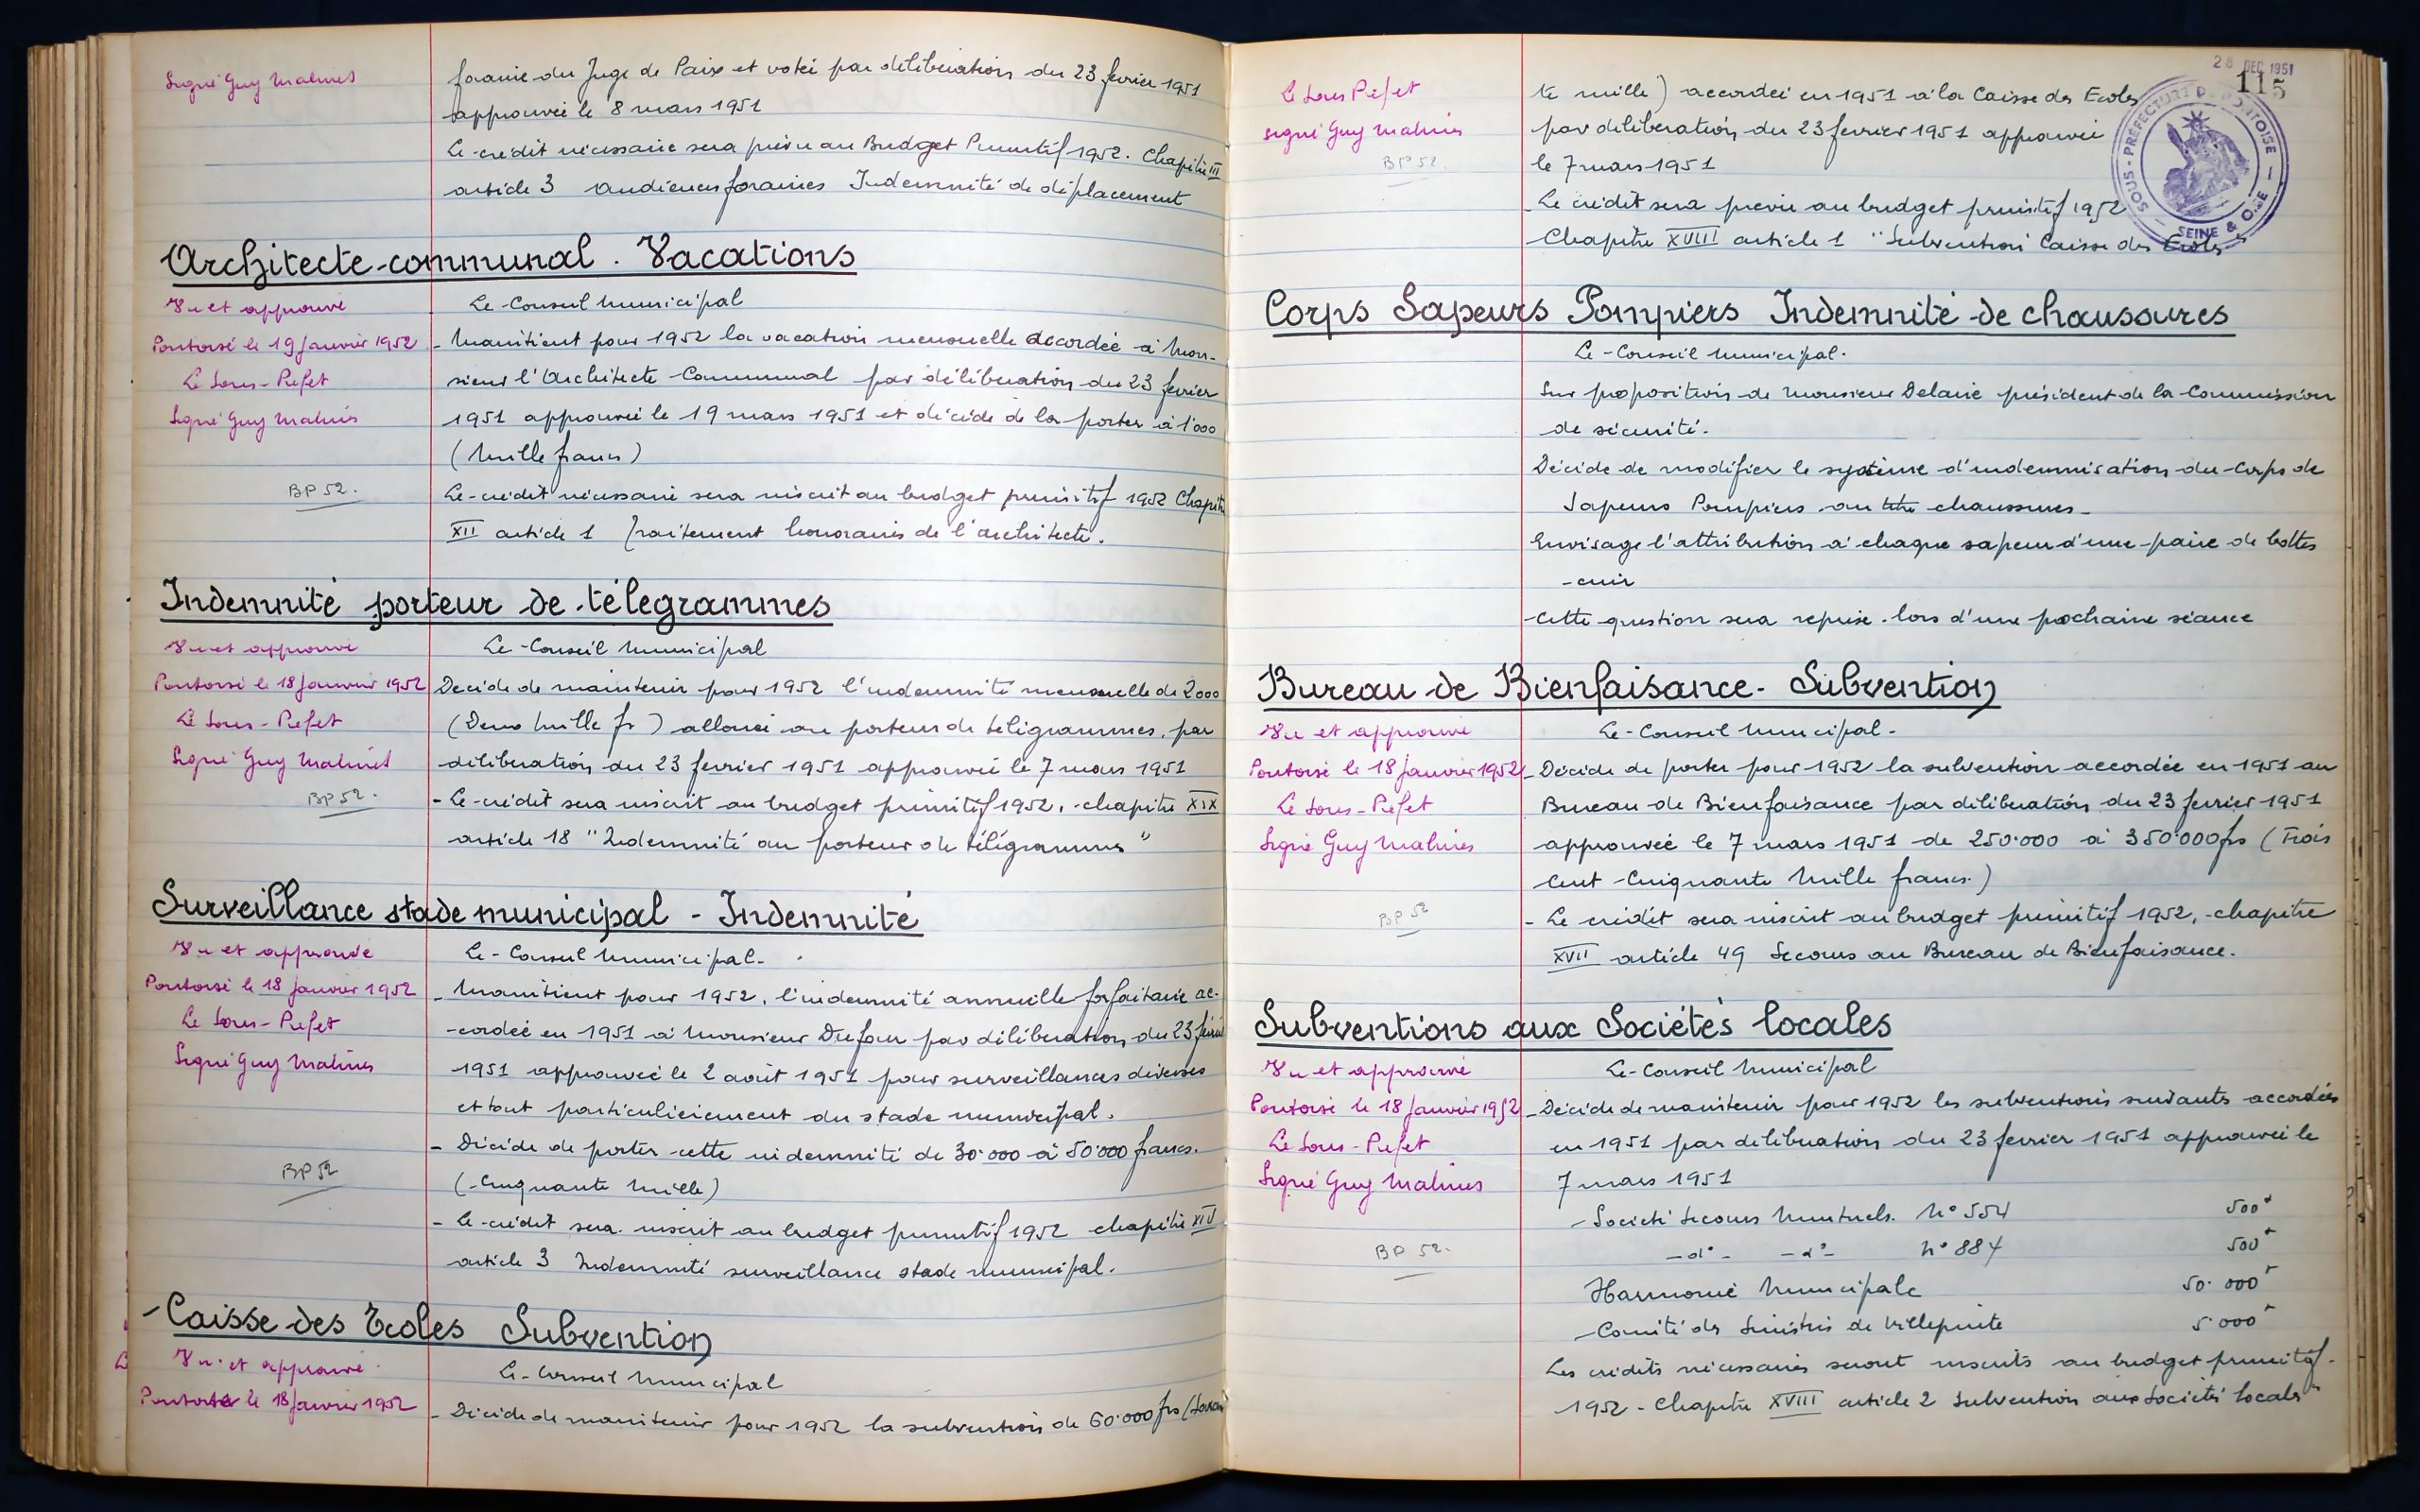 Signé Guy Malines
foraine du Juge de Paix et votée par délibération du 23 fevrier 1951
approuvée le 8 mars 1951
Le crédit nécessaire sera prévu au Budget Primitif 1952. Chapitre III
article 3 audiences foraines Indemnité de déplacement
Architecte communal. Vacations
Vu et approuvé
Pontoise le 19 Janvier 1952
Le Sous-Prefet
Signé Guy Malines
BP 52.
Le Conseil Municipal
- Maintient pour 1952 la vacation mensuelle accordée à Mon-
sieur l'Architecte Communal par délibération du 23 fevrier
1951 approuvée le 19 mars 1951 et décide de la porter à 1'000
(Mille francs)
Le crédit nécessaire sera inscrit au budget primitif 1952 Chapitre
XII article 1 Traitement honoraires de l'architecte.
Indemnité porteur de télégrammes
Vu et approuvé
Pontoise le 18 Janvier 1952
Le Sous-Prefet
Signé Guy Malines
BP 52.
Le Conseil Municipal
Decide de maintenir pour 1952 l'indemnité mensuelle de 2000
(Deux Mille fr) allouée au porteur de télégrammes, par
délibération du 23 fevrier 1951 approuvée le 7 mars 1951
- Le crédit sera inscrit au budget primitif 1952, chapitre XIX
article 18 "Indemnité au porteur de télégrammes"
Surveillance stade municipal - Indemnité
Vu et approuvé
Pontoise le 18 Janvier 1952
Le Sous-Prefet
Signé Guy Malines
BP 52
Le Conseil Municipal.
- Maintient pour 1952, l'indemnité annuelle forfaitaire ac-
-cordée en 1951 à Monsieur Dufour par délibération du 23 février
1951 approuvée le 2 août 1951 pour surveillances diverses
et tout particulièrement du stade municipal.
- Décide de porter cette indemnité de 30'000 à 50'000 francs.
(Cinquante Mille)
- Le crédit sera inscrit au budget primitif 1952 chapitre XIV
article 3 Indemnité surveillance stade municipal.
Caisse des Ecoles Subvention
Vu et approuvé
Pontoise le 18 Janvier 1952
Le Conseil Municipal
- Décide de maintenir pour 1952 la subvention de 60'000 frs (Soixan
28 DEC 1951
115
SOUS-PRÉFECTURE DE PONTOISE
SEINE & OISE
Le Sous Prefet
signé Guy Malines
BP 52.
te mille) accordée en 1951 à la Caisse des Ecoles
par délibération du 23 fevrier 1951 approuvée
le 7 mars 1951
- Le crédit sera prévu au budget primitif 1952
Chapitre XVIII article 1 "Subvention Caisse des Ecoles"
Corps Sapeurs Pompiers Indemnité de chaussures
Le Conseil Municipal.
Sur proposition de Monsieur Delaire président de la Commission
de sécurité.
Décide de modifier le système d'indemnisation du Corps de
Sapeurs Pompiers au titre chaussures -
Envisage l'attribution à chaque sapeur d'une paire de bottes
cuir
Cette question sera reprise lors d'une prochaine séance
Bureau de Bienfaisance - Subvention
Vu et approuvé
Pontoise le 18 Janvier 1952
Le Sous-Prefet
Signé Guy Malines
BP 52
Le Conseil Municipal -
- Décide de porter pour 1952 la subvention accordée en 1951 au
Bureau de Bienfaisance par délibération du 23 fevrier 1951
approuvée le 7 mars 1951 de 250'000 à 350'000 frs (Trois
Cent Cinquante Mille francs.)
- Le crédit sera inscrit au budget primitif 1952, chapitre
XVII article 49 Secours au Bureau de Bienfaisance.
Subventions aux Sociétés locales
Vu et approuvé
Pontoise le 18 Janvier 1952
Le Sous-Prefet
Signé Guy Malines
BP 52.
Le Conseil Municipal
- Décide de maintenir pour 1952 les subventions suivantes accordées
en 1951 par délibération du 23 fevrier 1951 approuvée le
7 mars 1951
- Société Secours Mutuels. N° 554 500 f
- d° - - d° - N° 884 500 f
Harmonie Municipale 50.000 f
- Comité des Sinistrés de Villepinte 5.000 f
Les crédits nécessaires seront inscrits au budget primitif
1952 - Chapitre XVIII article 2 Subvention aux Sociétés locales"